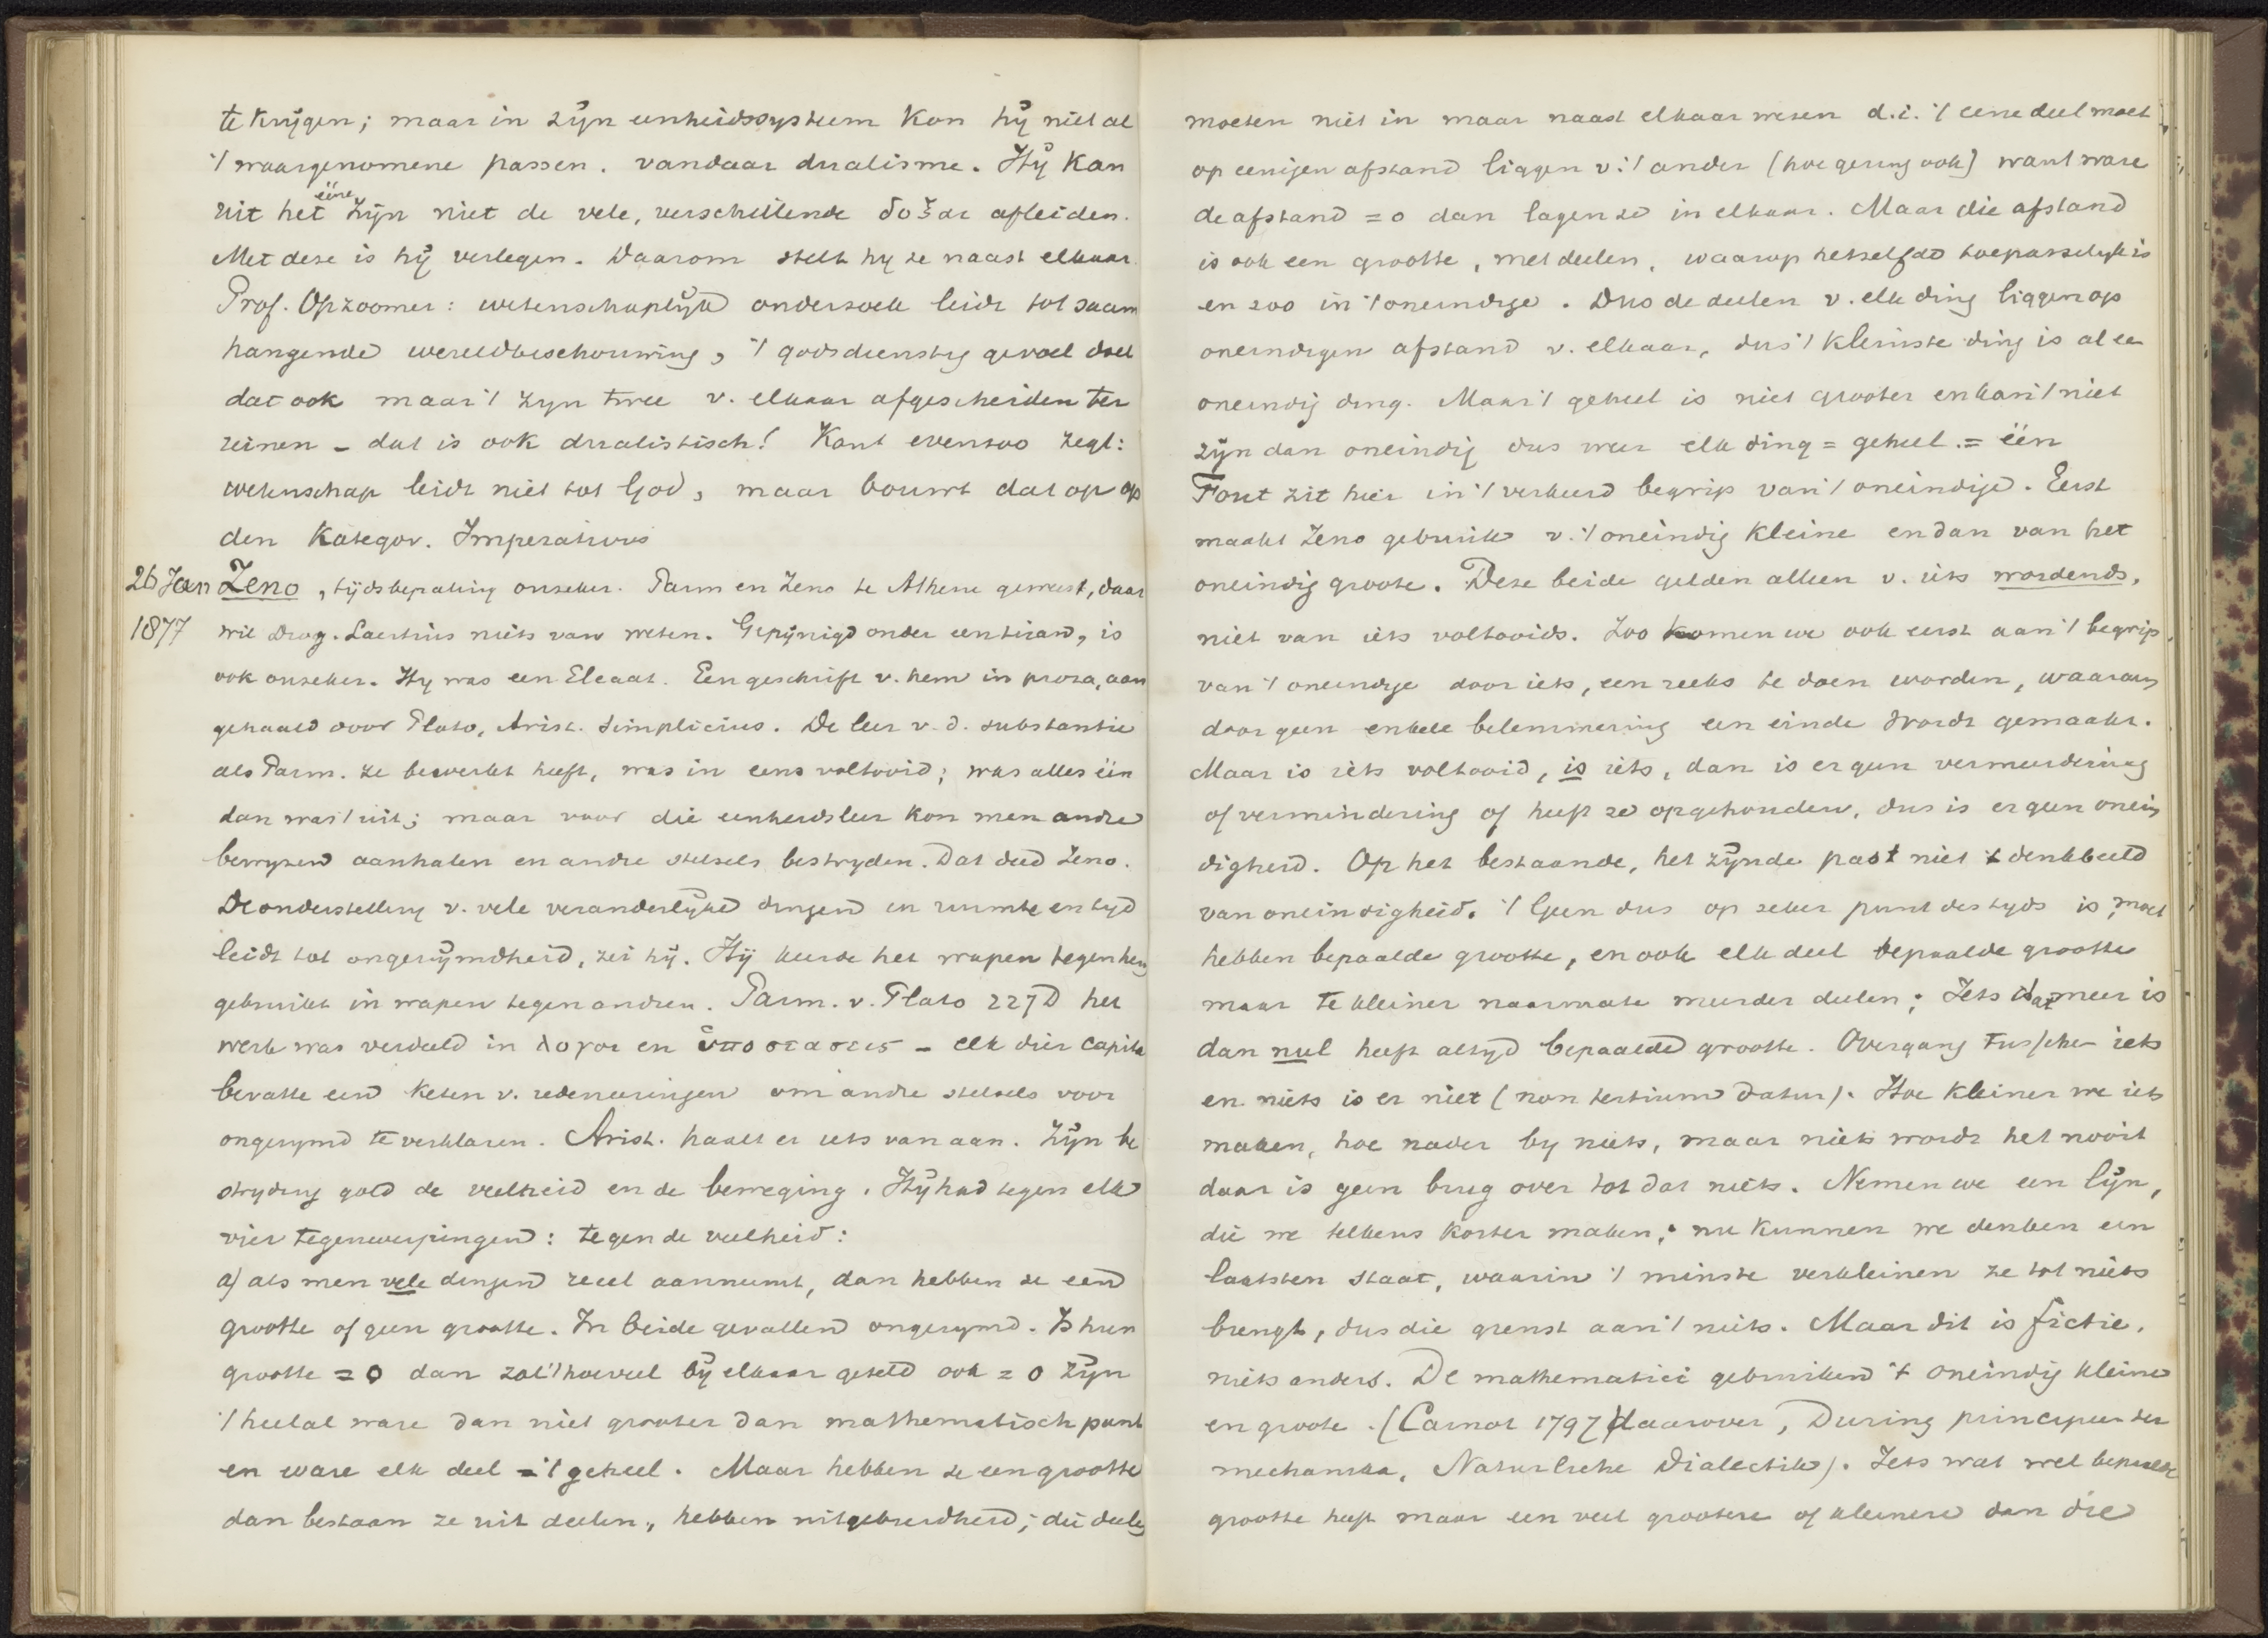 te krijgen; maar in zijn eenheidssysteem kon hij niet al
't waargenomene passen. vandaar dualisme. Hij kan
uit het ééne zijn niet de vele, verschillende δοξαι afleiden.
Met deze is hij verlegen. Daarom stelt hy ze naast elkaar.
Prof. Opzoomer: wetenschaplijk onderzoek leidt tot saam
hangende wereldbeschouwing, 't godsdienstig gevoel doet
dat ook maar 't zyn twee v. elkaar afgescheiden ter
reinen - dat is ook dualistisch! Kant evenzoo zegt:
wetenschap leidt niet tot God, maar bouwt dat op op
den Kategor. Imperativus
26 Jan Zeno, tijdsbepaling onzeker. Parm en Zeno te Athene geweest, daar
1877 wil Diog. Laertius niets van weten. Gepijnigd onder een tiran, is
ook onzeker. Hy was een Eleaat. Een geschrift v. hem in proza, aan
gehaald door Plato, Arist. Simplicius. De leer v. d. substantie
als Parm. ze bewerkt heeft, was in eens voltooid; was alles één
dan was 't uit; maar voor die eenheidsleer kon men andre
bewyzen aanhalen en andre stelsels bestryden. Dat deed Zeno.
De onderstelling v. vele veranderlijke dingen in ruimte en tyd
leidt tot ongerijmdheid, zei hij. Hij keerde het wapen tegen hen
gebruikt in wapen tegen andren. Parm. v. Plato 227D het
werk was verdeeld in λογοι en ὑποστασεις - elk dier capita
bevatte een keten v. redeneeringen om andre stelsels voor
ongerymd te verklaren. Arist. haalt er iets van aan. Zijn be
stryding gold de veelheid en de beweging. Hij had tegen elk
vier tegenwerpingen: tegen de veelheid:
a) als men vele dingen reeel aanneemt, dan hebben ze een
grootte of geen grootte. In beide gevallen ongerymd. Is hun
grootte = 0 dan zal 't hoeveel bij elkaar geteld ook = 0 zijn
't heelal ware dan niet grooter dan mathematisch punt
en ware elk deel = 't geheel. Maar hebben ze een grootte
dan bestaan ze uit deelen, hebben uitgebreidheid; die deelen
moeten niet in maar naast elkaar wesen d.i. 't eene deel moet
op eenigen afstand liggen v. 't ander (hoe gering ook) want ware
de afstand = 0 dan lagen ze in elkaar. Maar die afstand
is ook een grootte, met deelen, waarop hetzelfde toepasselyk is
en zoo in 't oneindige. Dus de deelen v. elk ding liggen op
oneindigen afstand v. elkaar, dus 't kleinste ding is al een
oneindig ding. Maar 't geheel is niet grooter en kan 't niet
zijn dan oneindig dus weer elk ding = geheel. = één
Fout zit hier in 't verkeerd begrip van 't oneindige. Eerst
maakt Zeno gebruik v. 't oneindig kleine en dan van het
oneindig groote. Deze beide gelden alleen v. iets wordends,
niet van iets voltooids. Zoo komen we ook eerst aan 't begrip
van 't oneindige door iets, een reeks te doen worden, waaraan
door geen enkele belemmering een einde wordt gemaakt.
Maar is iets voltooid, is iets, dan is er geen vermeerdering
of vermindering of heeft ze opgehouden, dus is er geen onein
digheid. Op het bestaande, het zijnde past niet 't denkbeeld
van oneindigheid. 't Geen dus op zeker punt des tyds is, moet
hebben bepaalde grootte, en ook elk deel bepaalde grootte
maar te kleiner naarmate meerder deelen; Iets dat meer is
dan nul heeft altyd bepaalde grootte. Overgang tusschen iets
en niets is er niet (non tertium datur). Hoe kleiner we iets
maken, hoe nader by niets, maar niets wordt het nooit
daar is geen brug over tot dat niets. Nemen we een lijn,
die we telkens korter maken; nu kunnen we denken een
laatsten staat, waarin 't minste verkleinen ze tot niets
brengt, dus die grenst aan 't niets. Maar dit is fictie,
niets anders. De mathematici gebruiken 't oneindig kleine
en groote. (Carnot 1797) daarover, During principien der
mechanika, Naturliche Dialectik). Iets wat wel bepaalde
grootte heeft maar een veel grootere of kleinere dan die